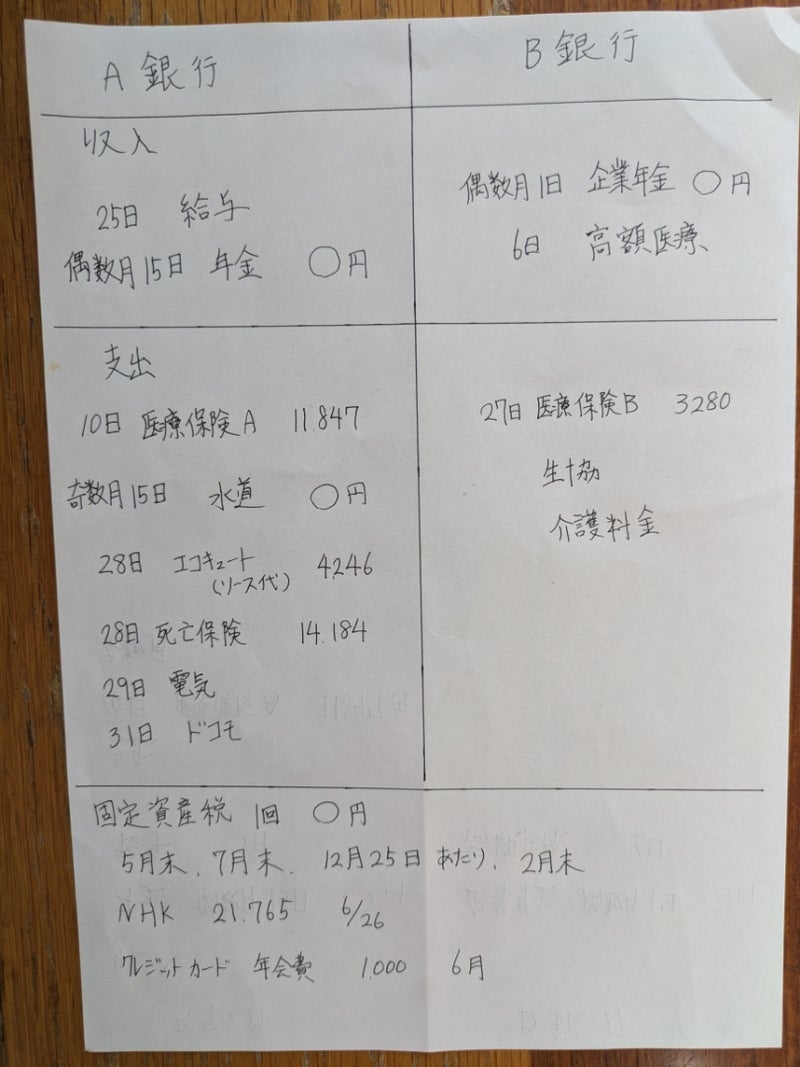 A 銀行
B 銀行
収入
25日 給与
偶数月15日 年金 ○円
偶数月1日 企業年金 ○円
6日 高額医療
支出
10日 医療保険A 11.847
奇数月15日 水道 ○円
28日 エコキュート 4.246
(リース代)
28日 死亡保険 14.184
29日 電気
31日 ドコモ
27日 医療保険B 3280
生協
介護料金
固定資産税 1回 ○円
5月末、7月末、12月25日あたり、2月末
NHK 21.765 6/26
クレジットカード 年会費 1.000 6月